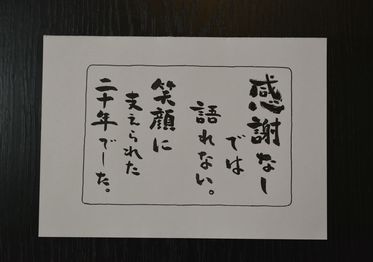 感謝なし
では
語れない。
笑顔に
支えられた
二十年でした。